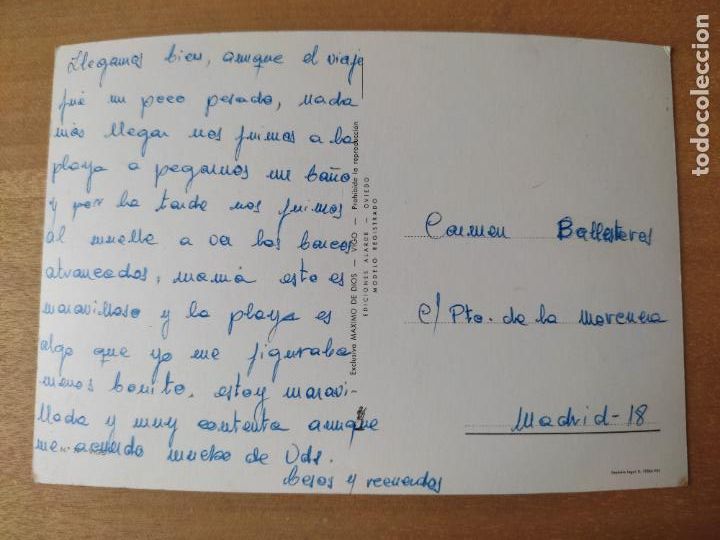 Llegamos bien, aunque el viaje
fué un poco pesado, nada
más llegar nos fuimos a la
playa a pegarnos un baño
y por la tarde nos fuimos
al muelle a ver los barcos
atrancados, mamá esto es
maravilloso y la playa es
algo que yo me figuraba
menos bonito, estoy maravi-
llada y muy contenta aunque
me acuerdo mucho de Uds.
besos y recuerdos
Exclusiva MAXIMO DE DIOS — VIGO — Prohibida la reproducción
EDICIONES ALARDE — OVIEDO
MODELO REGISTRADO
Carmen Ballesteros
c/ Pto. de la morcuera
Madrid-18
Depósito legal
todocoleccion